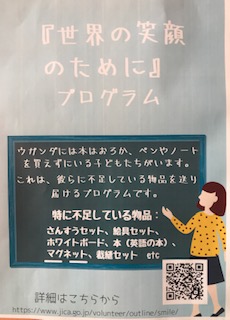 『世界の笑顔
のために』
プログラム
ウガンダには本はおろか、ペンやノート
を買えずにいる子どもたちがいます。
これは、彼らに不足している物品を送り
届けるプログラムです。
特に不足している物品：
さんすうセット、絵具セット、
ホワイトボード、本（英語の本）、
マグネット、裁縫セット　etc
詳細はこちらから
https://www.jica.go.jp/volunteer/outline/smile/